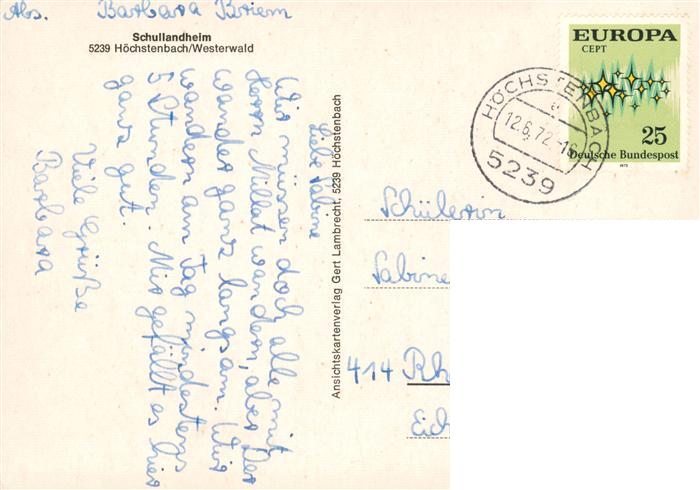 Abs. Barbara Briem
Schullandheim
5239 Höchstenbach/Westerwald
Liebe Sabine
Wir müssen doch alle mit
Herrn Millat wandern, aber der
wandert ganz langsam. Wir
wandern am Tag mindestens
5 Stunden. Mir gefällt es hier
ganz gut.
Viele Grüße
Barbara
Ansichtskartenverlag Gert Lambrecht, 5239 Höchstenbach
EUROPA
CEPT
25
Deutsche Bundespost
1972
HÖCHSTENBACH
12.6.72.-16
5239
Schülerin
Sabine
414 Rh
Eic